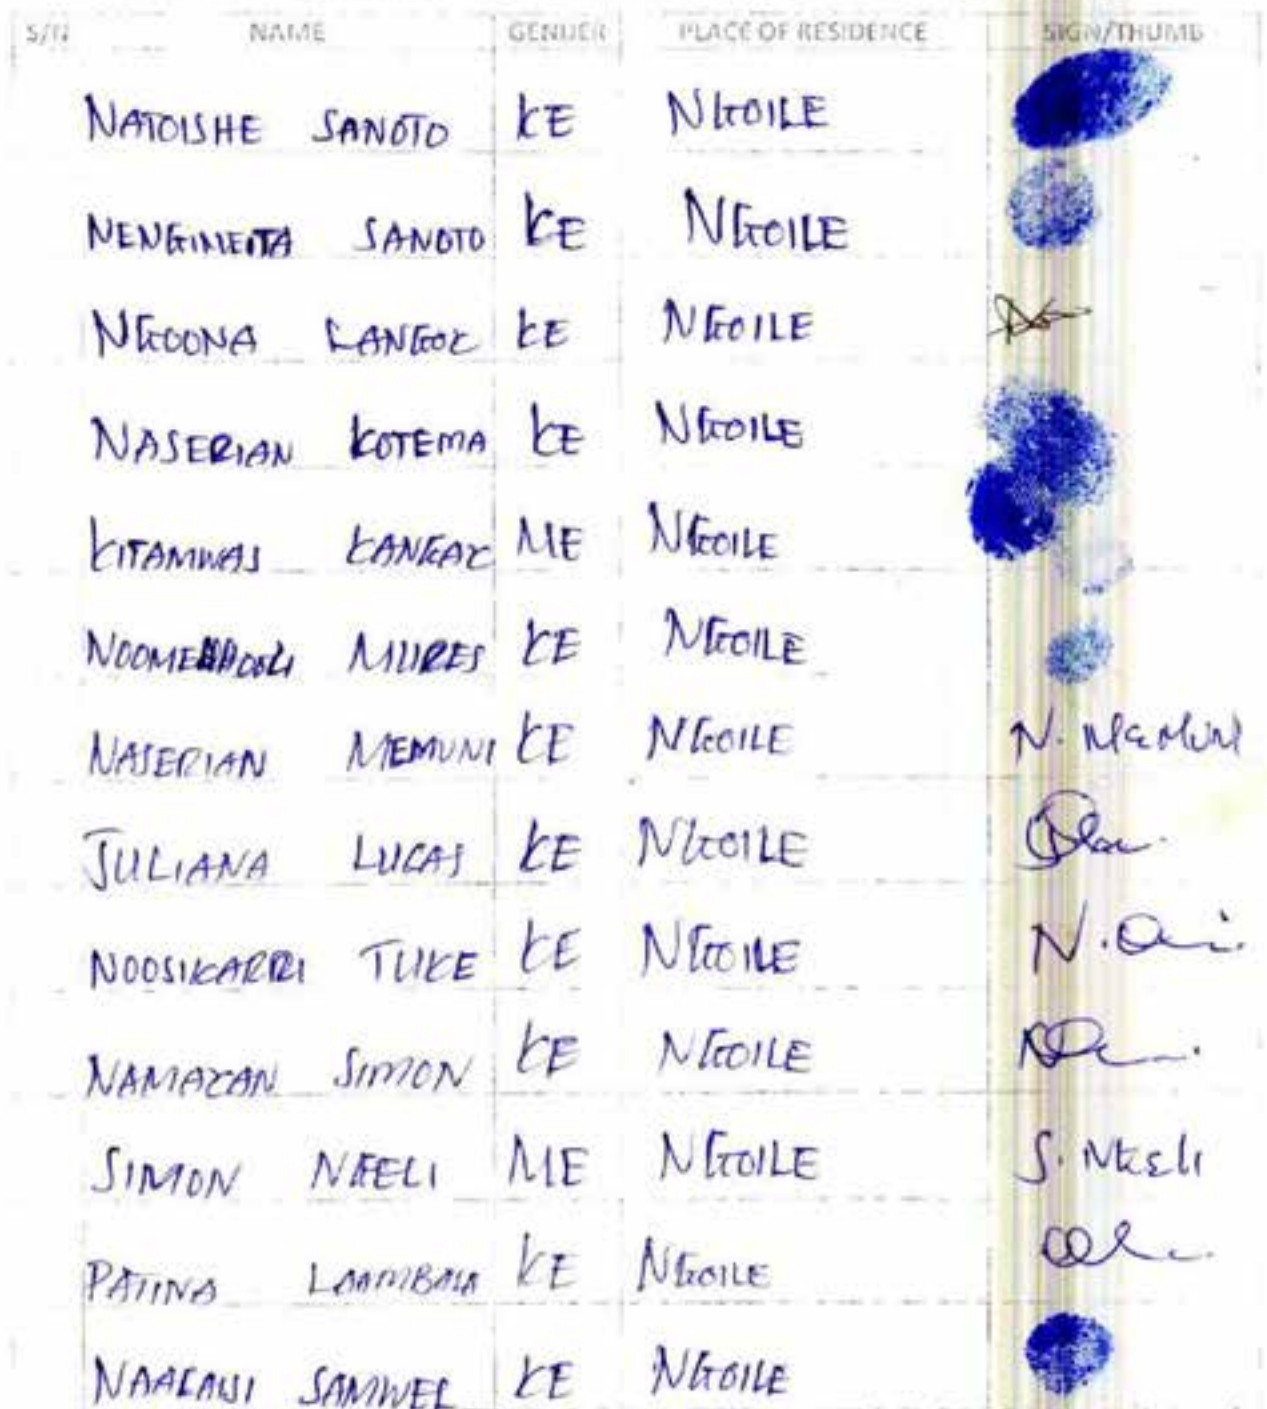 S/N NAME GENDER PLACE OF RESIDENCE SIGN/THUMB
NATOISHE SANOTO KE NGOILE
NENGIMEITA SANOTO KE NGOILE
NGOONA KE NGOILE
NASERIAN KOTEMA KE NGOILE
KITAMWAS ME NGOILE
MURES KE NGOILE
NASERIAN MEMUNI KE NGOILE N. MeMuni
JULIANA LUCAS KE NGOILE
NOOSIKARRI TUKE KE NGOILE
NAMAYAN SIMON KE NGOILE
SIMON NGELI ME NGOILE
PATINA KE NGOILE
SAMWEL KE NGOILE